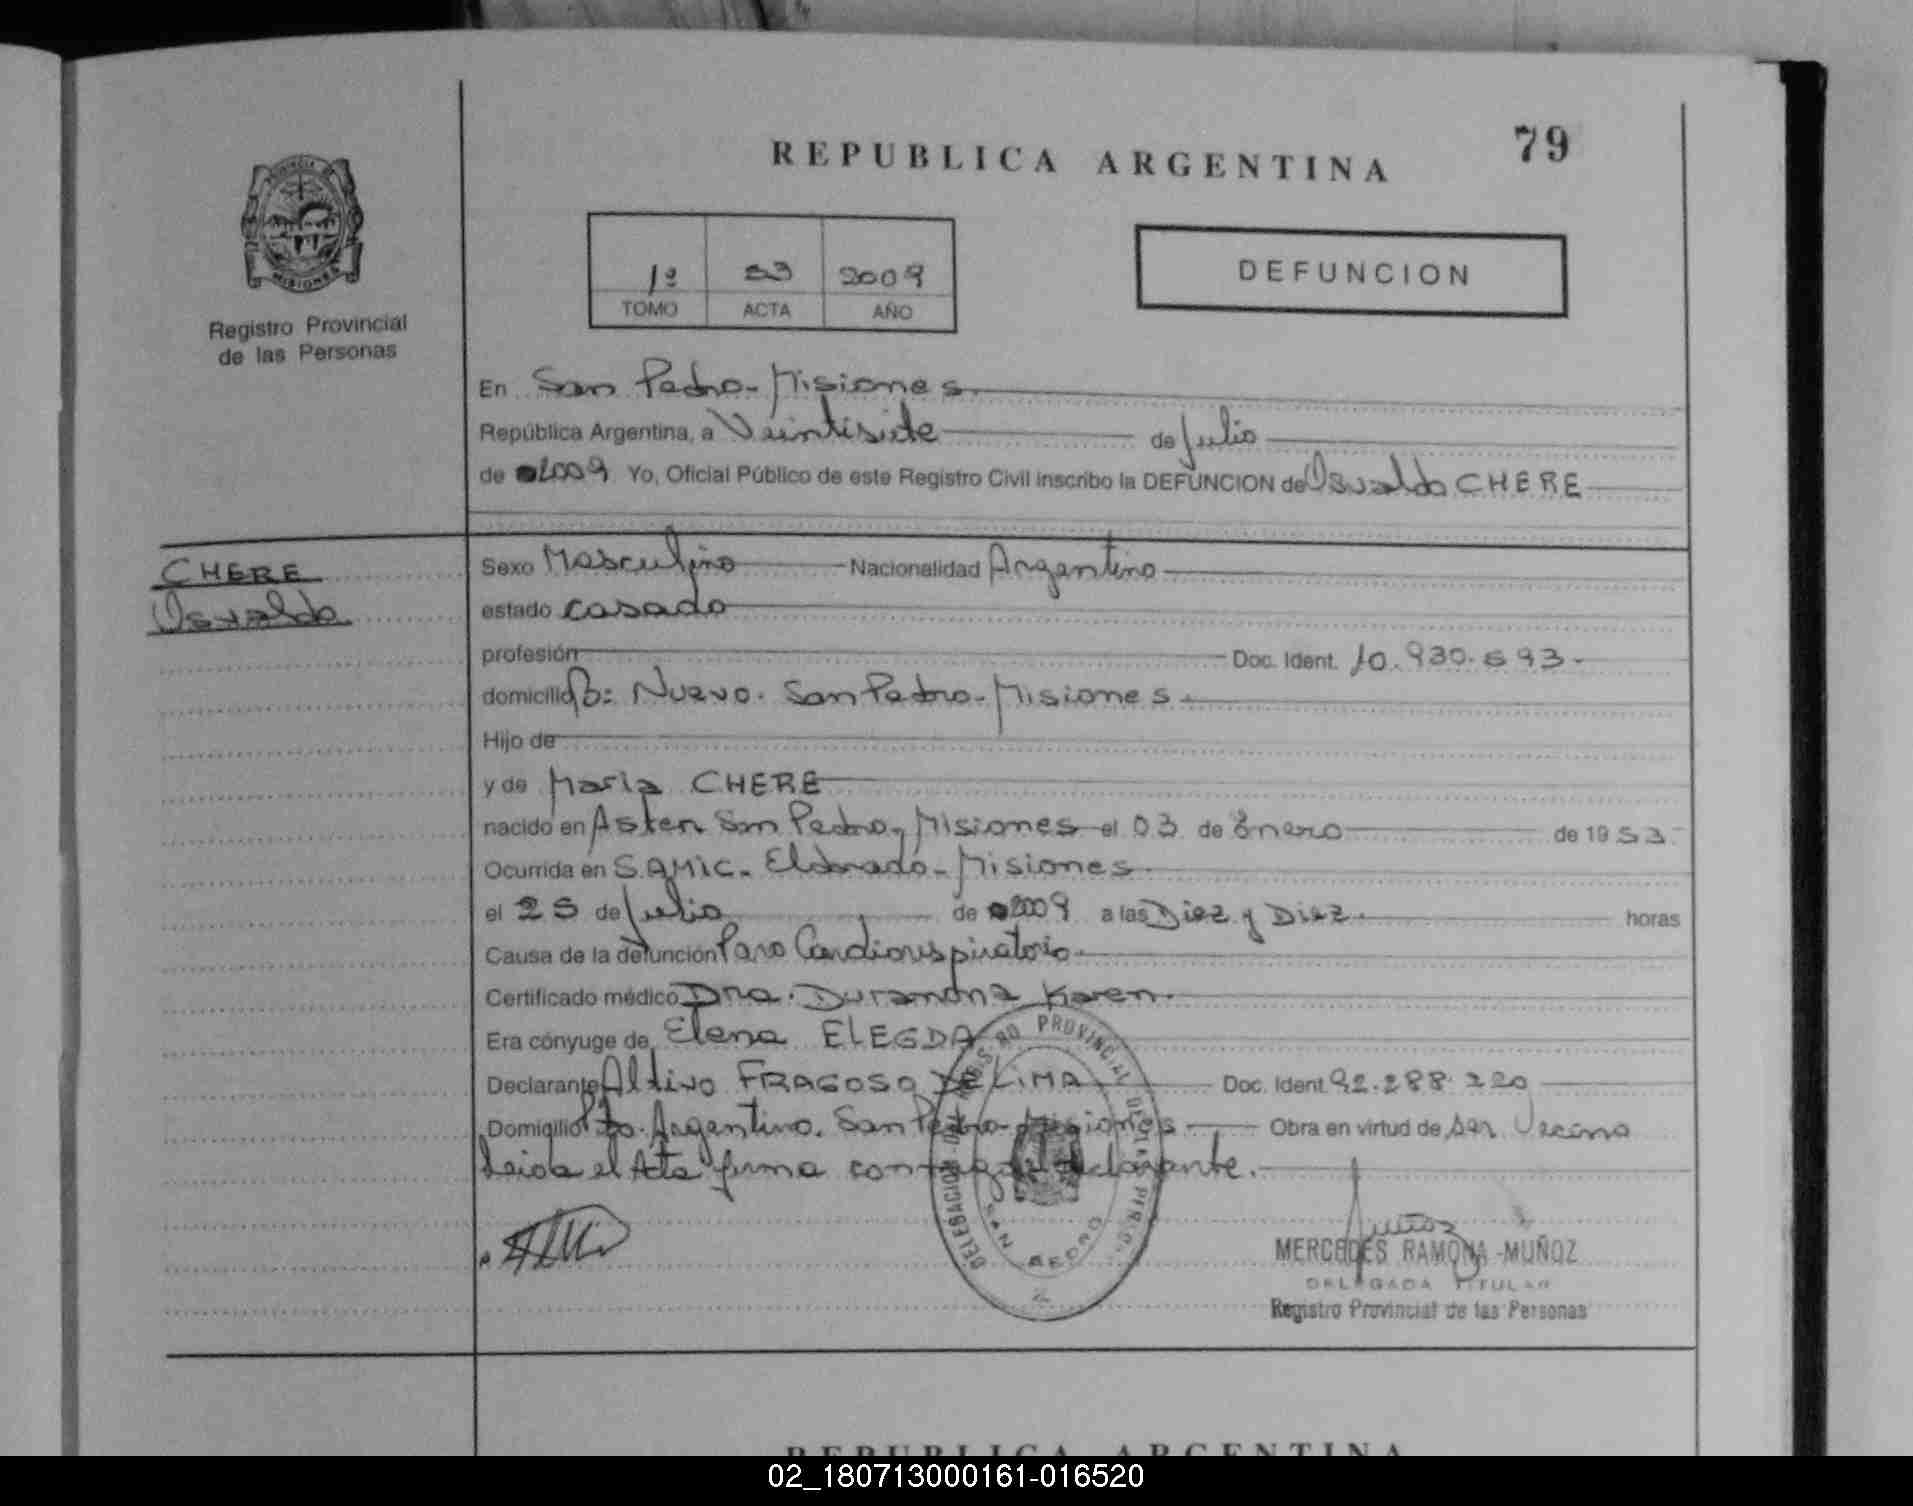 79
REPUBLICA ARGENTINA
PROVINCIA DE MISIONES
Registro Provincial
de las Personas
1º 53 2009
TOMO ACTA AÑO
DEFUNCION
En San Pedro - Misiones
República Argentina, a Veintisiete de Julio
de 2009 Yo, Oficial Público de este Registro Civil inscribo la DEFUNCION de Osvaldo CHERE
CHERE
Osvaldo
Sexo Masculino Nacionalidad Argentino
estado casado
profesión Doc. Ident. 10.930.593
domicilio Bº Nuevo. San Pedro - Misiones
Hijo de
y de María CHERE
nacido en San Pedro, Misiones el 03 de Enero de 1953
Ocurrida en SAMIC. Eldorado - Misiones
el 25 de Julio de 2009 a las Diez y Diez horas
Causa de la defunción Paro Cardiorespiratorio
Certificado médico Dra. Duramona Karen
Era cónyuge de Elena ELEGDA
Declarante Altivo FRAGOSO DE LIMA Doc. Ident 92.288.220
Domicilio Pto. Argentino. San Pedro - Misiones Obra en virtud de ser Vecino
Leida el Acta firma conmigo el declarante.
DELEGACION REGISTRO PROVINCIAL DE LAS PERS.
SAN PEDRO
MERCEDES RAMONA MUÑOZ
DELEGADA TITULAR
Registro Provincial de las Personas
REPUBLICA ARGENTINA
02_180713000161-016520